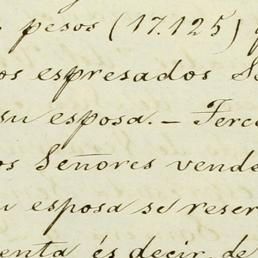 pesos (17.125)
os espresados Se
su esposa. — Terce
os Señores vende
u esposa se reser
enta és decir de